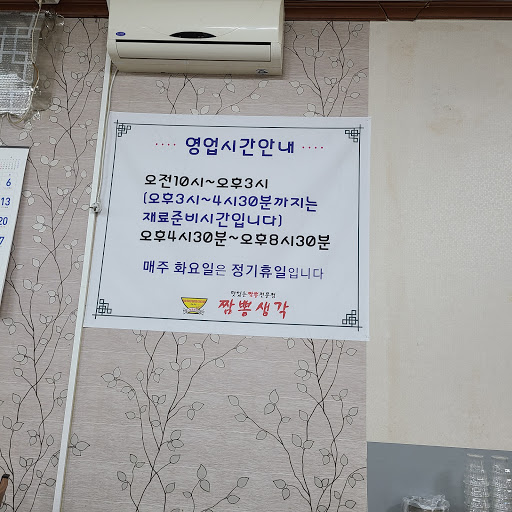 영업시간안내
오전10시~오후3시
(오후3시~4시30분까지는
재료준비시간입니다)
오후4시30분~오후8시30분
매주 화요일은 정기휴일입니다
맛있는짬뽕전문점
짬뽕생각
6
13
20